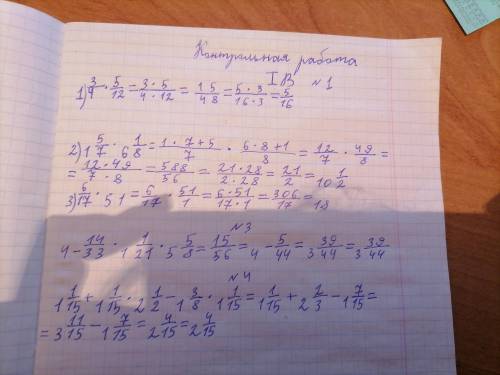 Контрольная работа
I В №1
1) 3/4 · 5/12 = 3·5/4·12 = 15/48 = 5·3/16·3 = 5/16
2) 1 5/7 · 6 1/8 = 1·7+5/7 · 6·8+1/8 = 12/7 · 49/8 =
= 12·49/7·8 = 588/56 = 21·28/2·28 = 21/2 = 10 1/2
3) 6/17 · 51 = 6/17 · 51/1 = 6·51/17·1 = 306/17 = 18
№3
4 - 14/33 · 1 1/21 · 5 5/8 = 15/56 = 4 - 5/44 = 3 39/44 = 3 39/44
№4
1 1/15 + 1 1/15 · 2 1/2 - 1 3/8 · 1 1/15 = 1 1/15 + 2 2/3 - 1 7/15 =
= 3 11/15 - 1 7/15 = 2 4/15 = 2 4/15